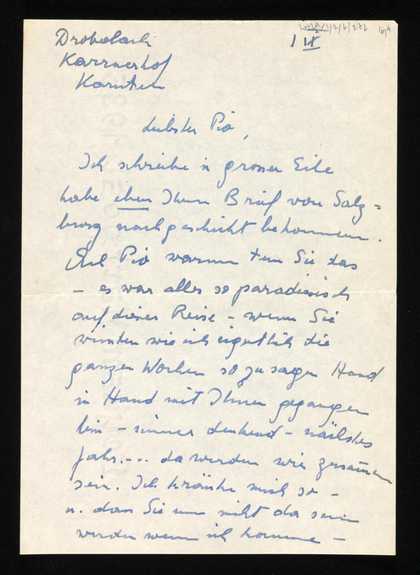 Drobollach
Karrnerhof
Kärnten
1 IX
Liebster Pio,
Ich schreibe in grosser Eile
habe eben Ihren Brief von Salz=
burg nachgeschickt bekommen.
Pio warum tun Sie das
– es war alles so paradiesisch
auf dieser Reise – wenn Sie
wüssten wie ich eigentlich die
ganzen Wochen sozusagen Hand
in Hand mit Ihnen gegangen
bin – immer denkend – nächstes
Jahr... da werden wir zusammen
sein. Ich kränke mich so –
u. dass Sie nun nicht da sein
werden wenn ich komme –